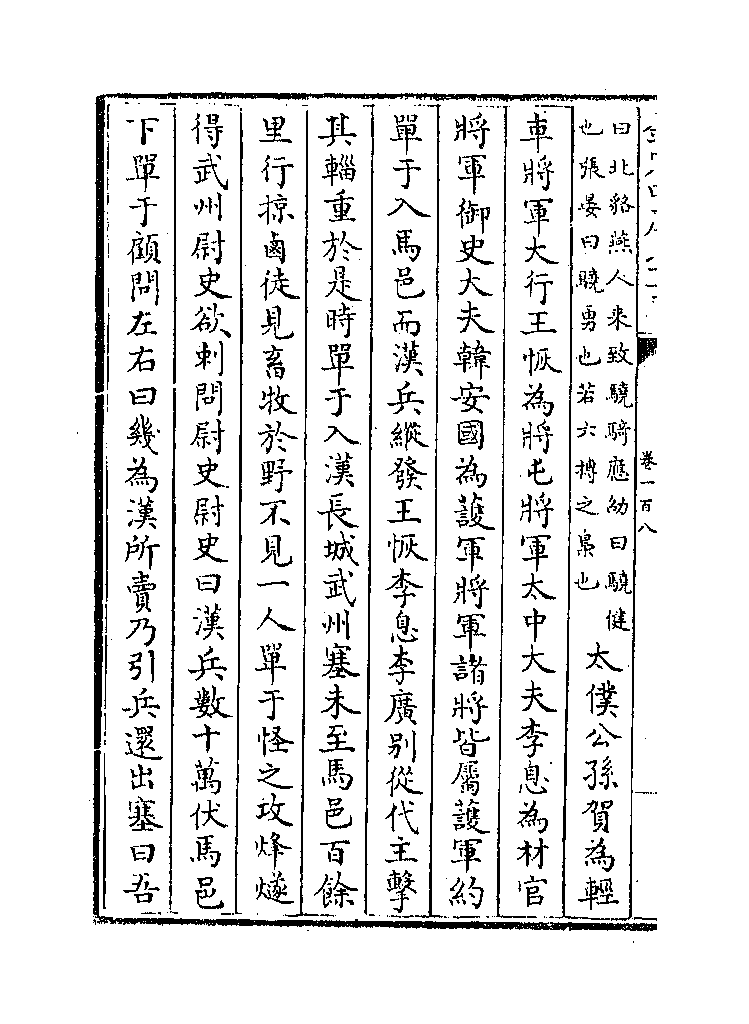 卷一百八
曰北貉燕人来致驍騎應劭曰驍健
也張晏曰驍勇也若六搏之梟也
太僕公孫賀為輕
車將軍大行王恢為將屯將軍太中大夫李息為材官
將軍御史大夫韓安國為護軍將軍諸將皆屬護軍約
單于入馬邑而漢兵縱發王恢李息李廣别從代主擊
其輜重於是時單于入漢長城武州塞未至馬邑百餘
里行掠鹵徒見畜牧於野不見一人單于怪之攻烽燧
得武州尉史欲刺問尉史尉史曰漢兵數十萬伏馬邑
下單于顧問左右曰幾為漢所賣乃引兵還出塞曰吾